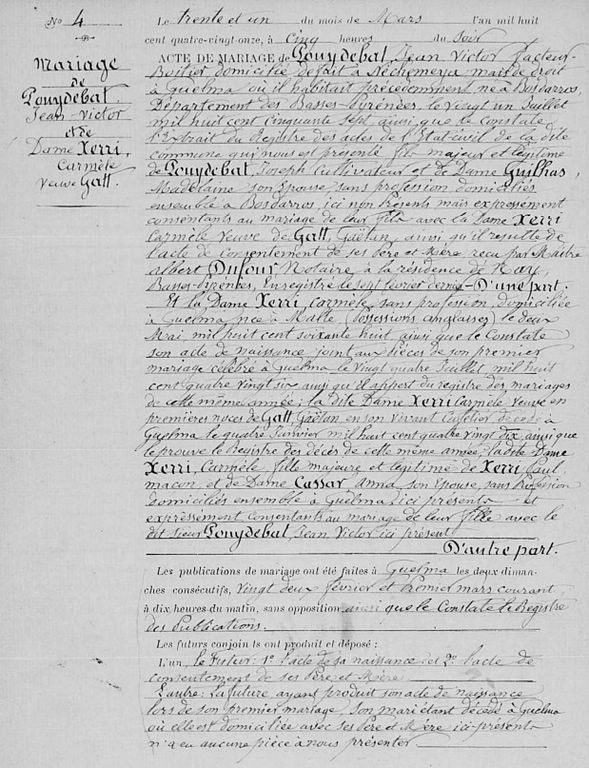 No 4
Mariage
de
Pouydebat.
Jean-Victor
et de
Dame Xerri,
Carmèle
veuve Gatt.
Le trente et un du mois de Mars l'an mil huit
cent quatre-vingt-onze, à Cinq heures du Soir
ACTE DE MARIAGE de Pouydebat, Jean Victor Facteur-
Boitier domicilié de fait à Néchemeya mais de droit
à Guelma où il habitait précécemment né à Bosdarros,
Département des Basses-Pyrénées, le vingt un Juillet
mil huit cent cinquante sept ainsi que le Constate
l'Extrait du Registre des actes de l'Etat civil de la dite
commune qui nous est présenté fils majeur et légitime
de Pouydebat, Joseph Cultivateur et de Dame Guilhas,
Madelaine son Epouse, sans profession domiciliés
ensemble à Bosdarros, ici non présents mais expressément
consentants au mariage de leur fils avec la Dame Xerri
Carmèle Veuve de Gatt, Gaëtan, ainsi qu'il resulte de
l'acte de consentement de ses Père et Mère reçu par Maître
albert Dufour Notaire à la résidence de Nay,
Basses-Pyrénées, Enregistré le sept février dernier - D'une part.
Et la Dame Xerri, Carmèle, sans profession, Domiciliée
à Guelma, née à Malte (Possessions anglaises) le deux
Mai, mil huit cent soixante huit, ainsi que le Constate
son acte de naissance joint aux pièces de son premier
mariage célébré à Guelma le Vingt quatre Juillet mil huit
cent quatre vingt six ainsi qu'il appert du registre des mariages
de cette même année; la dite Dame Xerri Carmèle Veuve en
premières noces de Gatt, Gaëtan, en son vivant Cafetier décédé à
Guelma le quatre Janvier mil huit cent quatre vingt dix, ainsi que
le prouve le Registre des décès de cette même année, la dite Dame
Xerri, Carmèle, fille majeure et légitime de Xerri Paul
macon, et de Dame Cassar Anna, son Epouse, sans Profession
domiciliés ensemble à Guelma, ici présents et
expressément consentants au mariage de leur fille avec le
dit sieur Pouydebat, Jean Victor ici présent
D'autre part.
Les publications de mariage ont été faites à Guelma les deux diman-
ches consécutifs, vingt deux février et Premier mars courant
à dix heures du matin, sans opposition ainsi que le Constate le Registre
des Publications.
Les futurs conjoints ont produit et déposé :
L'un, le Futeur: 1° l'acte de sa naissance et 2° l'acte de
consentement de ses Père et Mère
L'autre: la future, ayant produit son acte de naissance
lors de son premier mariage, Son mari étant décédé à Guelma
où elle est domiciliée avec ses Père et Mère ici-présents
n'a eu aucune pièce à nous présenter